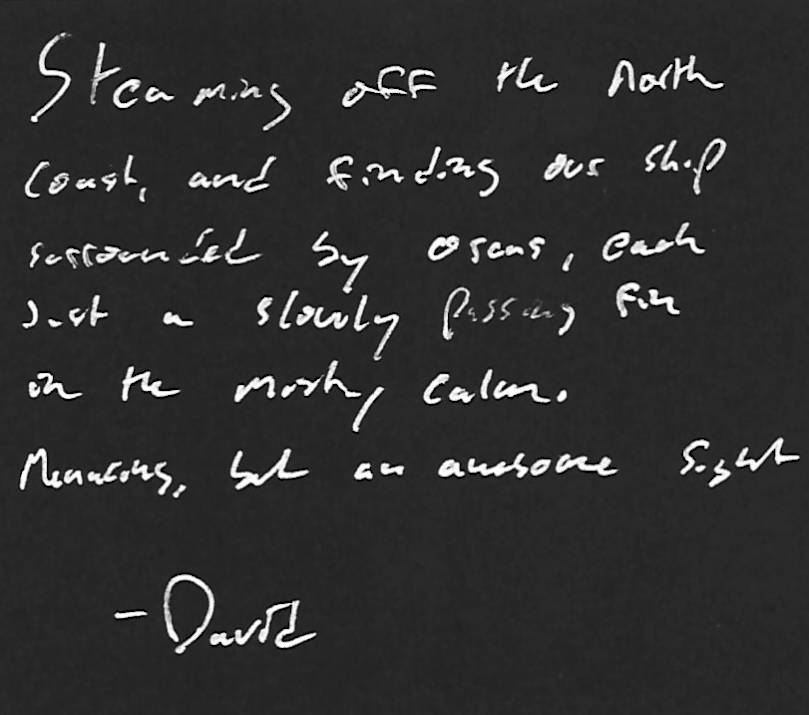 Steaming off the North
Coast, and finding our ship
surrounded by orcas, each
Just a slowly passing fin
in the calm.
Menacing, but an awesome sight
-David